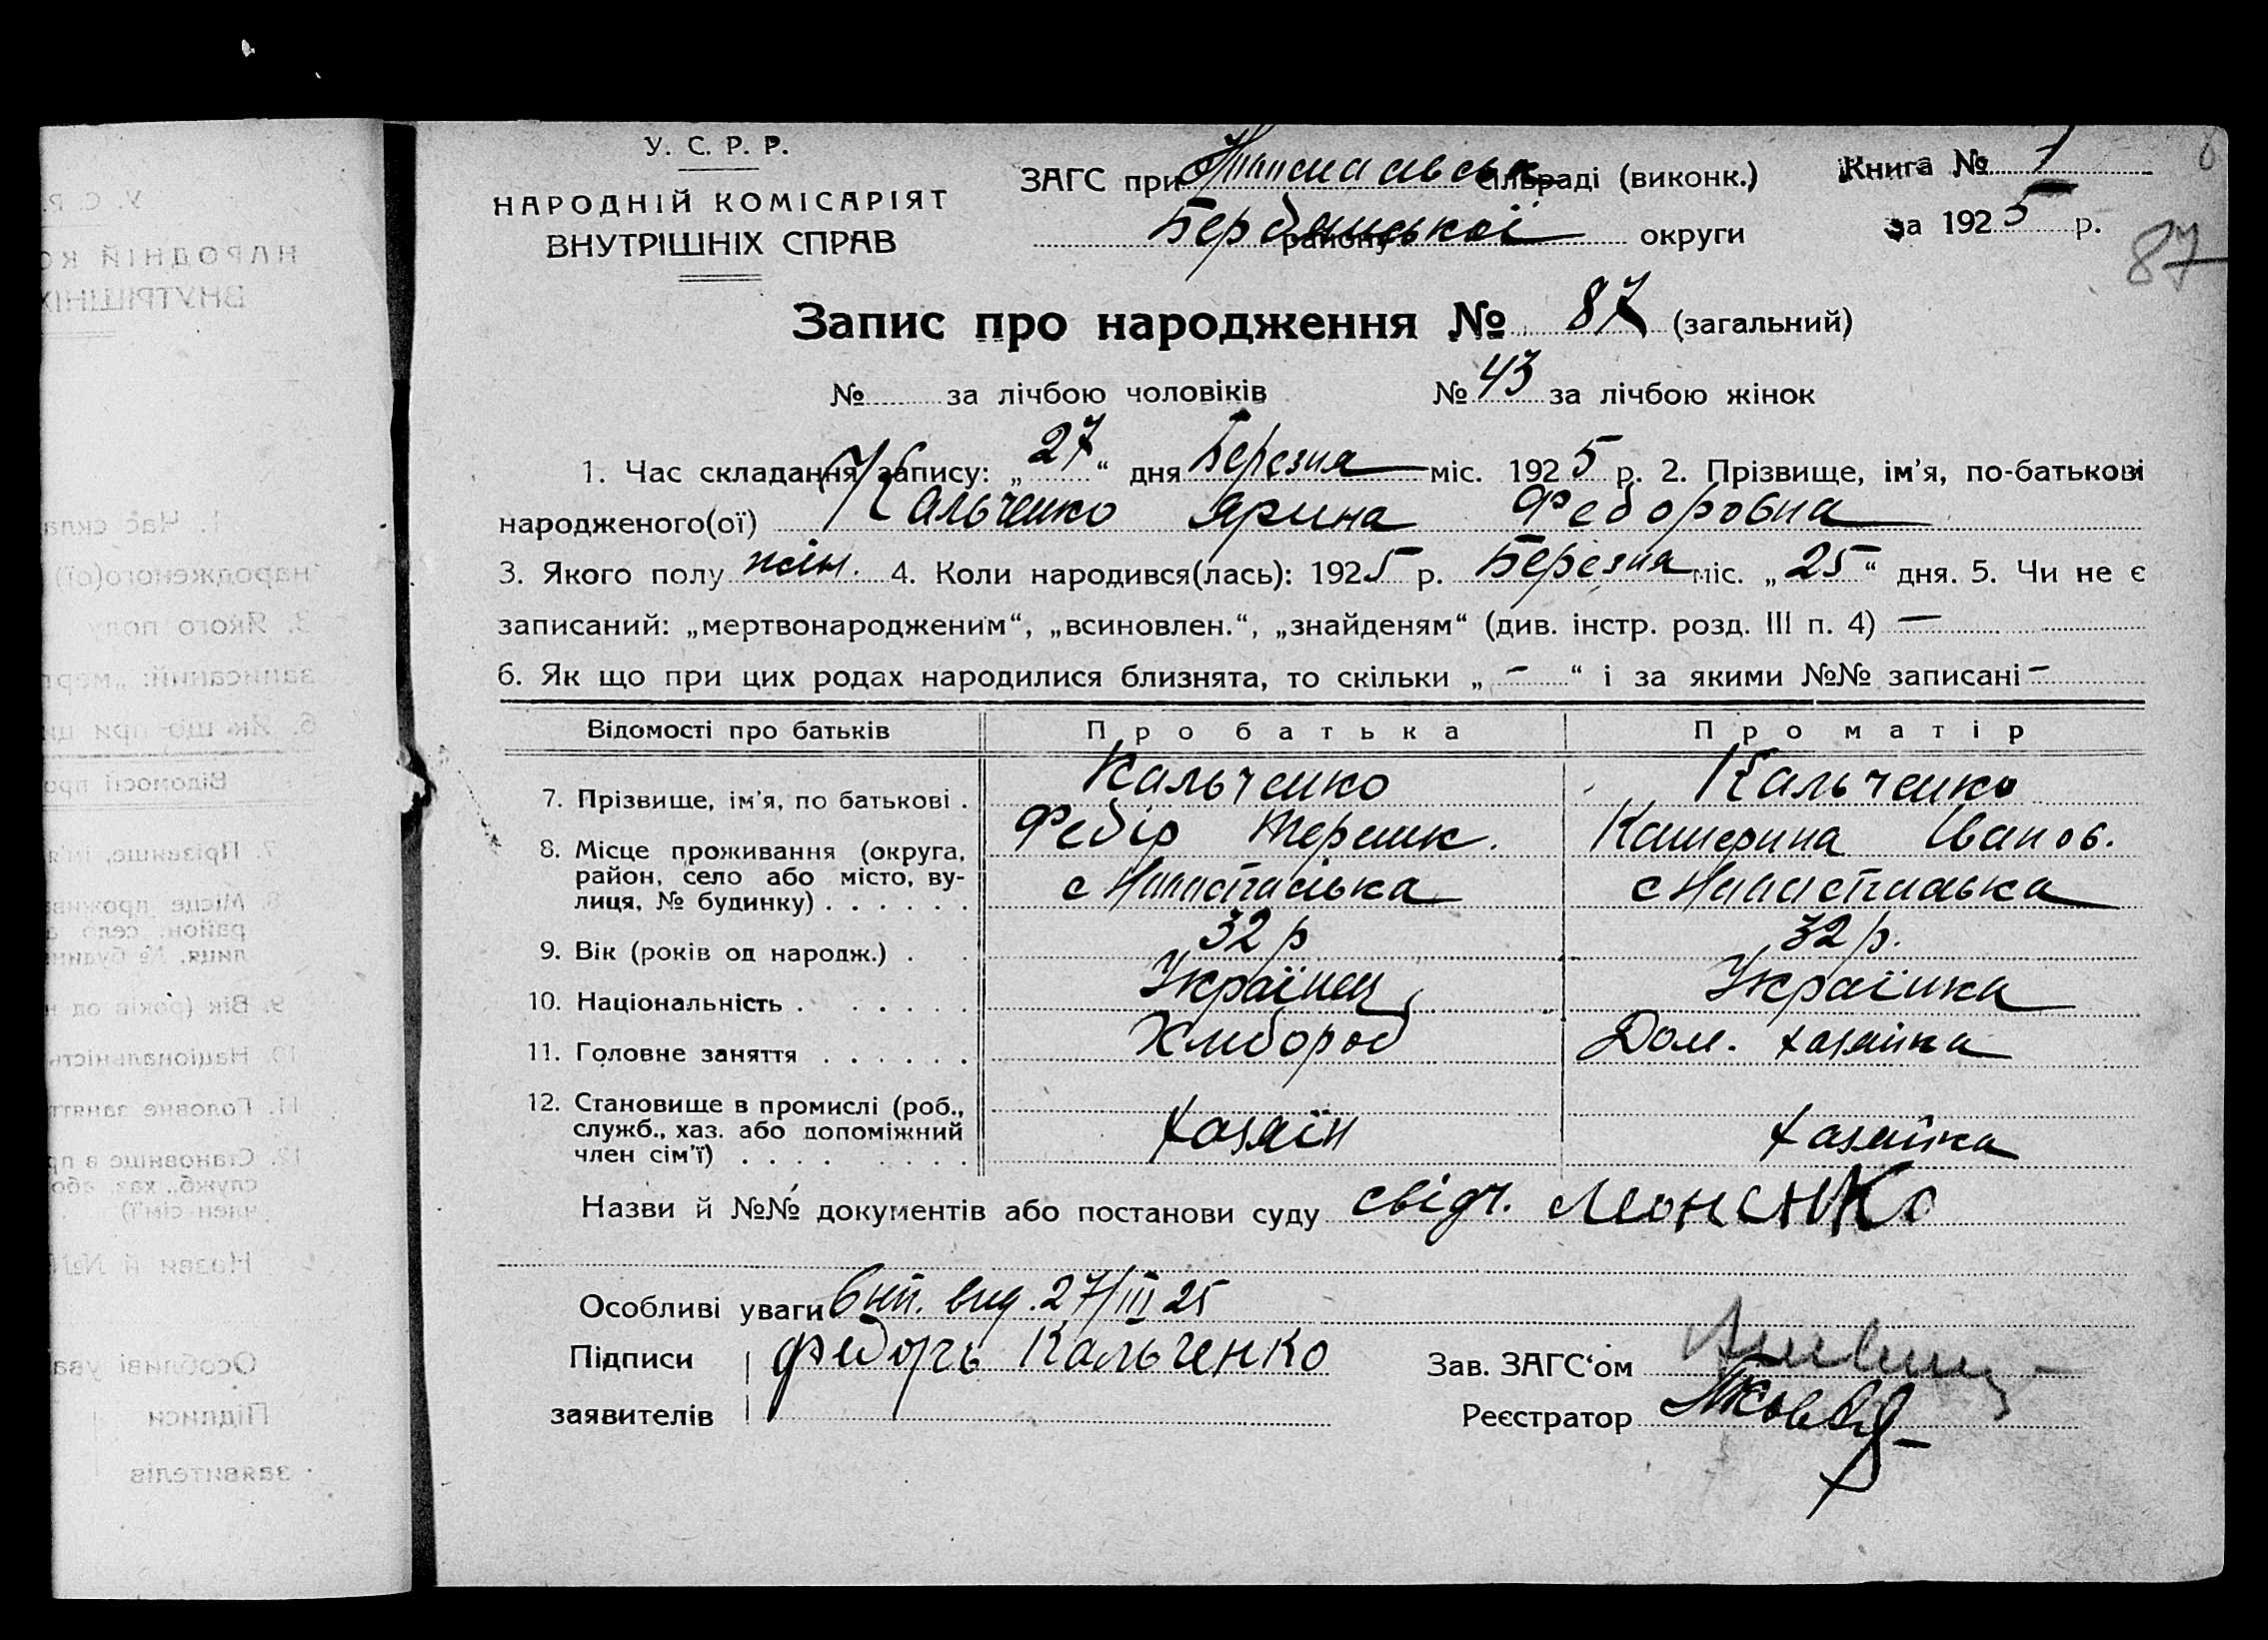 У. С. Р. Р.
НАРОДНІЙ КОМІСАРІЯТ
ВНУТРІШНІХ СПРАВ
ЗАГС при сільраді (виконк.)
району Бердянської округи
Книга № 1
за 1925 р.
87
Запис про народження № 87 (загальний)
№ за лічбою чоловіків № 43 за лічбою жінок
1. Час складання запису: „27“ дня Березня міс. 1925 р. 2. Прізвище, ім'я, по-батькові
народженого(ої) Кальченко Ярина Федоровна
3. Якого полу жін. 4. Коли народився(лась): 1925 р. Березня міс. „25“ дня. 5. Чи не є
записаний: „мертвонародженим“, „всиновлен.“, „знайденям“ (див. інстр. розд. III п. 4) —
6. Як що при цих родах народилися близнята, то скільки „ – “ і за якими №№ записані –
Відомості про батьків Про батька Про матір
7. Прізвище, ім'я, по батькові . Кальченко Кальченко
Федір Терешк. Катерина Іванов.
8. Місце проживання (округа, район, село або місто, вулиця, № будинку) . . . . . . с
9. Вік (років од народж.) . . 32 р 32 р.
10. Національність . . . . . . Українец Українка
11. Головне заняття . . . . . . Хлібороб Дом. хазяйка
12. Становище в промислі (роб., служб., хаз. або допоміжний член сім'ї) . . . . . . . . хазяїн хазяйка
Назви й №№ документів або постанови суду свідч.
Особливі уваги вид. 27/III 25
Підписи Федоръ Кальченко
заявителів
Зав. ЗАГС'ом
Реєстратор